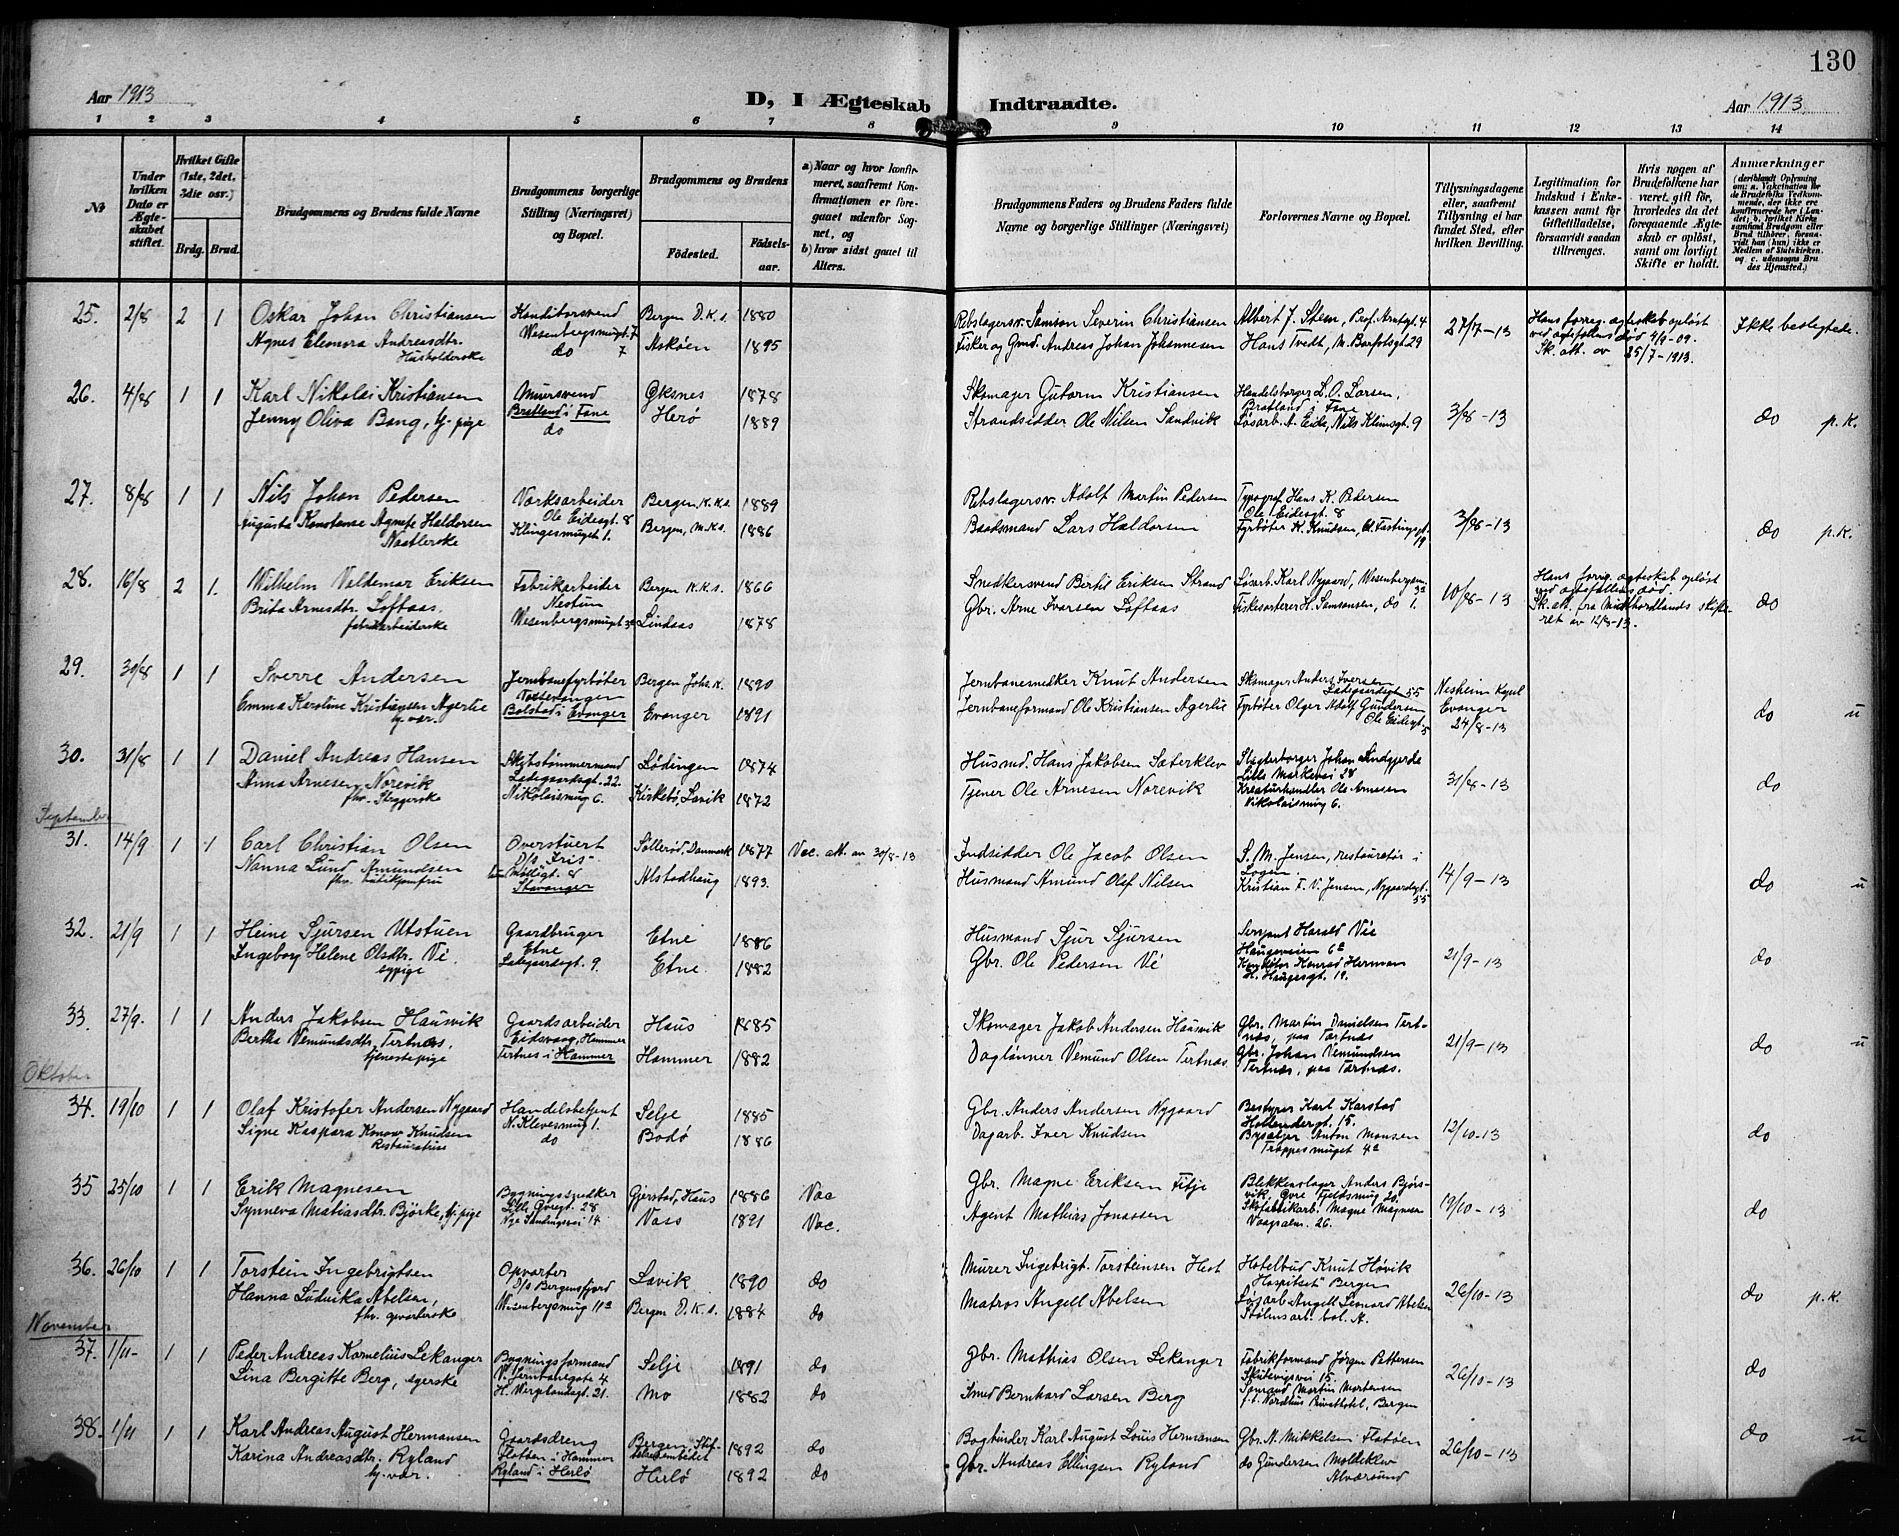 130
Aar 1913
D, I Ægteskab Indtraadte.
Aar 1913
1 2 3 4 5 6 7 8 9 10 11 12 13 14
№
Under hvilken Dato er Ægteskabet stiftet.
Hvilket Gifte (1ste, 2det, 3die osv.)
Brdg. Brud.
Brudgommens og Brudens fulde Navne
Brudgommens borgerlige Stilling (Næringsvei) og Bopæl.
Brudgommens og Brudens
Födested.
Födselsaar.
a) Naar og hvor konfirmeret, saafremt Konfirmationen er foregaaet udenfor Sognet, og
b) hvor sidst gaaet til Alters.
Brudgommens Faders og Brudens Faders fulde Navne og borgerlige Stillinger (Næringsvei)
Forlovernes Navne og Bopæl.
Tillysningsdagene eller, saafremt Tillysning ei har fundet Sted, efter hvilken Bevilling.
Legitimation for Indskud i Enkekassen samt for Giftetilladelse, forsaavidt saadan tiltrænges.
Hvis nogen af Brudefolkene har været gift för, hvorledes da det foregaaende Ægteskab er oplöst, samt om lovligt Skifte er holdt.
Anmærkninger (deriblandt Oplysning om: a. Vakcination for de Brudefolks Vedkommende, der ikke ere konfirmerede her i Landet; b. hvilket Kirkesamfund Brudgom eller Brud tilhörer, forsaavidt han (hun) ikke er Medlem af Statskirken, og c. udensogns Brudes Hjemsted.)
25. 2/8 2 1 Oskar Johan Christiansen Konditorsvend Bergen D.K.s. 1880 Rebslagersv. Samson Severin Christiansen Albert J. Steen, 27/7-13 Hans forrig. ægteskab opløst Ikke beslegtede.
Agnes Eleonora Andreasdtr. Wesenbergsmugt. 7 Askøen 1895 Fisker og Gmd. Andreas Johan Johannesen Hans Tvedt, M. Barfotsgt. 29 ved ægtefællens død 4/9-09.
Husholderske do 7 Sk. att. av 25/7-1913.
26. 4/8 1 1 Karl Nikolai Kristiansen Muersvend Øksnes 1878 Skomager Guttorm Kristiansen Handelsborger L. O. Larsen, 3/8-13 do p. K.
Jenny Oliva Bang, tj. pige Bratland i Fane Herø 1889 Strandsidder Ole Nilsen Sandvik Bratland i Fane
do Løsarb. A. Eide, Nils Klimsgt. 9
27. 8/8 1 1 Nils Johan Pedersen Verksarbeider Bergen K.K.s. 1889 Rebslagersv. Adolf Martin Pedersen Typograf Hans K. Pedersen 3/8-13 do p. K.
Augusta Konstanse Agnete Haldorsen Ole Eidesgt. 8 Bergen, M.K.s. 1886 Baadsmand Lars Haldorsen Ole Eidesgt. 8
Klingesmuget 1. Fyrbøter K. Knudsen, 19
28. 16/8 2 1. Wilhelm Valdemar Eriksen Fabrikarbeider Bergen K.K.s. 1866 Snedkersvend Bertil Eriksen Strand Løsarb. Karl Nygaard, Wesenbergsm. 3a 10/8-13 Hans forrig. ægteskab opløst do
Brita Arnesdtr. Loftaas. Nestun ved ægtefællens død.
fabrikarbeiderske Wesenbergsmugt 3a Lindaas 1878 Gbr. Arne Iversen Loftaas Fiskesorterer H. Samsonsen, do 1. Sk. att. fra Midthordlands skifteret av 12/8-13.
29. 30/8 1 1 Sverre Andersen Jernbanefyrbøter Bergen Johs. K. 1890 Jernbanesmedker Knut Andersen Skomager Anders Iversen Nesheim Kapel
Emma Karoline Kristiansen Agerlie Bolstad i Evanger Evanger 1891 Jernbaneformand Ole Kristiansen Agerlie Ladegaardsgt 55 Evanger
tj. var. Fyrbøter Olger Adolf Gundersen Ole Eidesgt. 5 24/8-13 do u
30. 31/8 1 1 Daniel Andreas Hansen Skibstømmermand Lødingen 1874 Husmd. Hans Jakobsen Sæterklev Slagterborger Johan 31/8-13 do
Anna Arnesen Norevik Ladegaardsgt. 22. Lille Markevei 28
fhv. Steggerske Nikolaismug 6. Kirkebø, Lavik 1872 Tjener Ole Arnesen Norevik Kreaturhandler Ole Arnesen Nikolaismug 6.
September
31. 14/9 1 1 Carl Christian Olsen Overstuert Søllerød, Danmark 1877 Vac. att. av 30/8-13 Indsidder Ole Jacob Olsen S. M. Jensen, restauratør i Logen 14/9-13 do u
Nanna Lund Amundsen D/s Iris-
fhv. butikjomfru Stavanger Alstadhaug 1893. Husmand Amund Olaf Nilsen Kristian F. V. Jensen, Nygaardsgt. 55
32. 21/9 1 1 Heine Sjursen Utstuen Gaardbruger Etne 1886 Husmand Sjur Sjursen Sersjant Harald Vie 21/9-13 do
Ingeborg Helene Olsdtr. Vi. Etne Haugeveien 6a
sypige Ladegaardsgt. 9. Etne 1882 Gbr. Ole Pedersen Vi Konrad Herman H. Haugesgt. 19.
33. 27/9. 1 1 Anders Jakobsen Hausvik Gaardsarbeider Haus 1885 Skomager Jakob Andersen Hausvik Gbr. Martin Danielsen Tertnæs, paa Tertnæs 21/9-13 do u
Bertha Vemundsdtr. Tertnæs, Eidsvaag, Hammer
tjenestepige Tertnes i Hammer Hammer 1882 Daglønner Vemund Olsen Tertnæs Gbr. Johan Vemundsen Tertnæs, paa Tertnæs.
Oktober
34. 19/10 1 1 Olaf Kristofer Andersen Nygaard Handelsbetjent Selje 1885 Gbr. Anders Andersen Nygaard Bestyrer Karl Karstad 12/10-13 do
Signe Kaspara Konow Knudsen N. Klevesmug 1. Hollendergt. 15.
Restauratrise do Bodø 1886 Dagarb. Iver Knudsen Anton Monsen Trappesmuget 4a
35 25/10 1 1 Erik Magnesen Bygningssnedker Gjerstad, Haus 1886 Vac Gbr. Magne Eriksen Fitje Blikkenslager Anders Bjørsvik, Øvre Fjeldsmug 20. 19/10-13 do
Synneva Matiasdtr. Bjørke, tj. pige Lille Øvregt. 28 Voss 1891 Vac. Agent Mathias Jonassen Skofabrikarb. Magne Magnesen
Nye Sandviksvei 14 Vaagsalm. 26.
36. 26/10 1 1 Torstein Ingebrigtsen Opvarter Lavik 1890 do Murer Ingebrigt Torsteinsen Host Hotelbud Knut Høvik 26/10-13 do p. K.
Hanna Ludvika Abelsen, D/s Bergensfjord "Hospitset" Bergen
fhv. opvarterske Wesenbergsmug 11a Bergen D.K.s. 1884 do Matros Angell Abelsen Løsarb Angell Leonard Abelsen Stølens arb. bol. A.
November
37. 1/11- 1 1 Peder Andreas Kornelius Lekanger Bygningsformand Selje 1891 do Gbr. Mathias Olsen Lekanger Fabrikformand Jørgen Pettersen 26/10-13 do
Lina Bergitte Berg, sygerske V. Jernbanegate 4 Skutevigsvei 15
H. Wergelandsgt. 21. Mo 1882 do Smed Bernhard Larsen Berg Sømand Martin Mortensen Nordhus Privathotel, Bergen
38. 1/11 1 1 Karl Andreas August Hermansen Gaardsdreng Bergen, Stiftelsesmbedet 1892 do Bogbinder Karl August Louis Hermansen Gbr. N. Mikkelsen Flatøen 26/10-13 do u
Karina Andreasdtr. Ryland Flatøen i Hammer
tj. var. Ryland i Herlø Herlø 1892 do Gbr. Andreas Ellingsen Ryland do Gundersen Moldeklev Alværsund